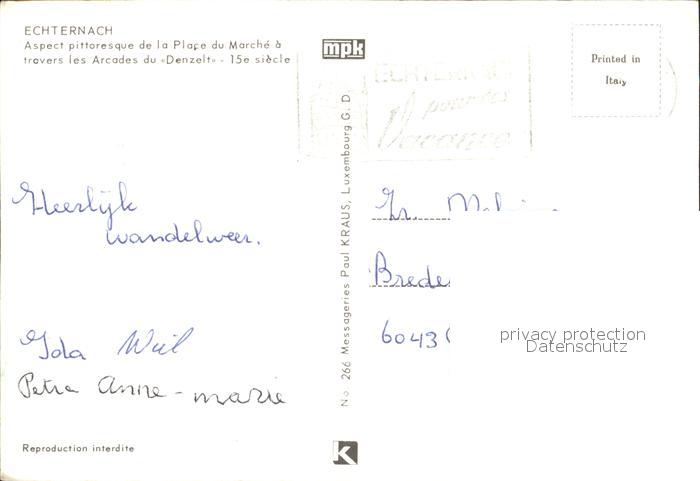 ECHTERNACH
Aspect pittoresque de la Place du Marché à
travers les Arcades du «Denzelt» - 15e siècle
mpk
ECHTERNACH
pour vos
Vacances
Printed in
Italy
Heerlijk
wandelweer.
Ida Wiel
Petra Anne-marie
No 266 Messageries Paul KRAUS, Luxembourg G. D.
Brede
6043
privacy protection
Datenschutz
Reproduction interdite
K